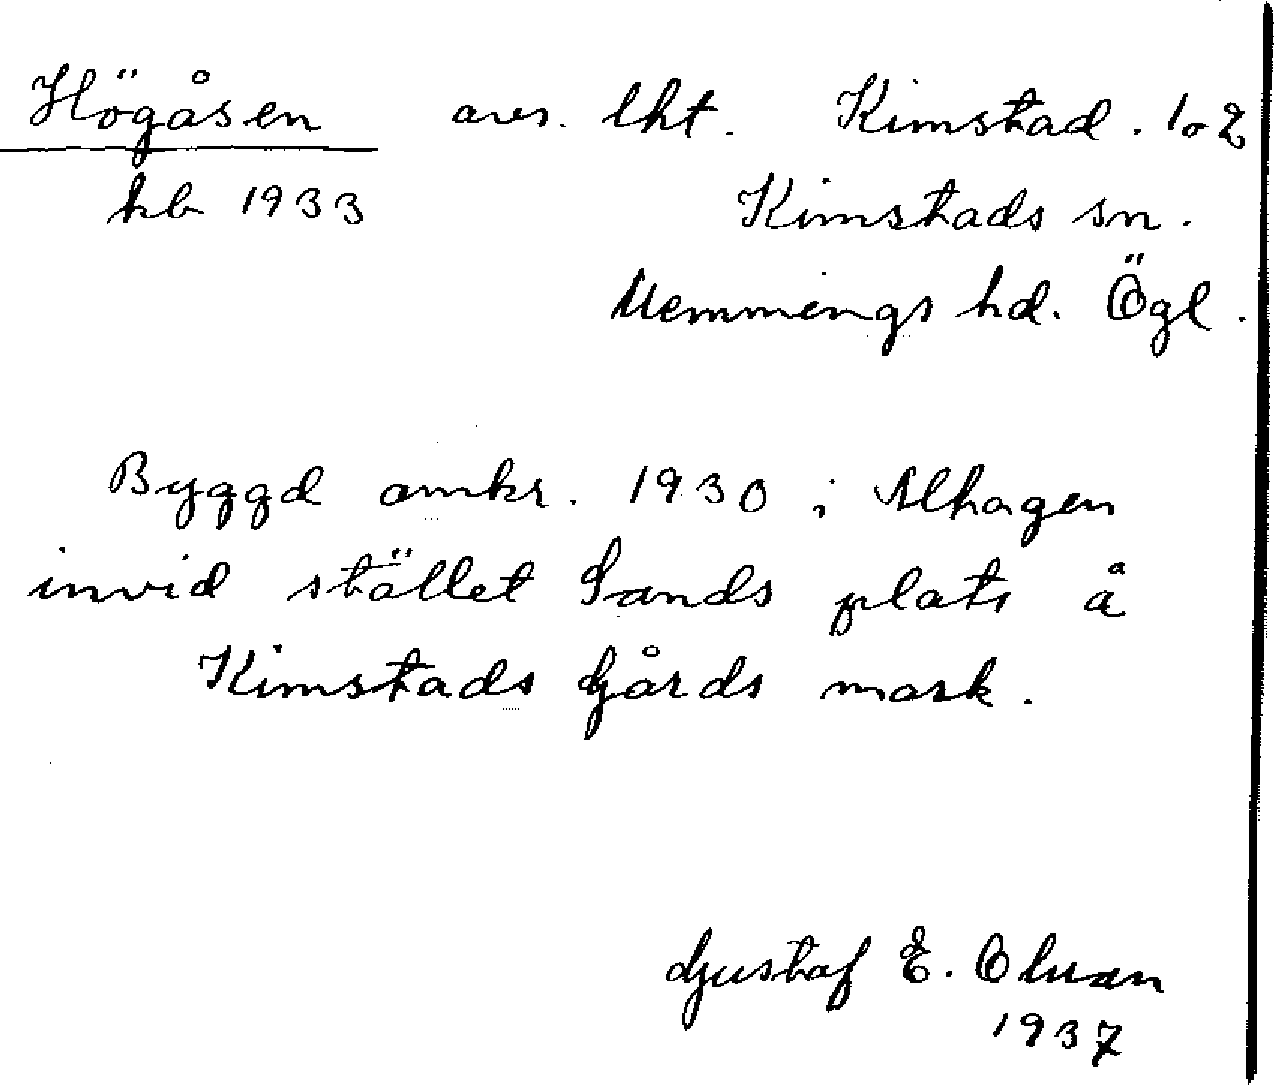 Högåsen avs. lht. Kimstad. 1o2
kb 1933 Kimstads sn.
Memmings hd. Ögl.
Byggd omkr. 1930 i Alhagen
invid stället Sands plats å
Kimstads Gårds mark.
Gustaf E. Olsson
1937